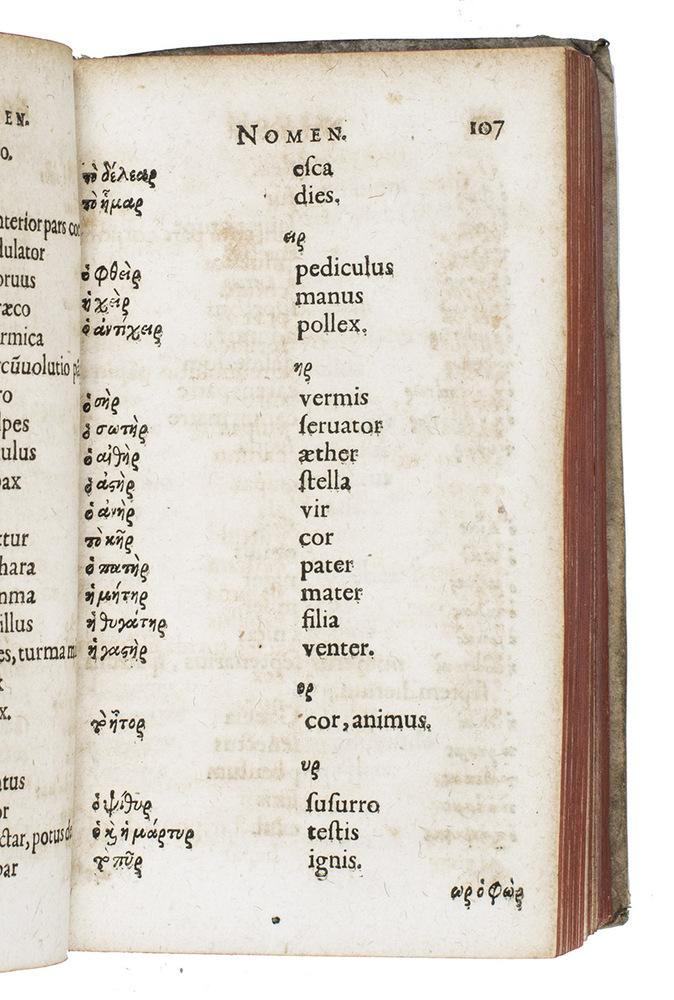 EN.
o.
nterior pars cor
dulator
oruus
ræco
rmica
rcũuolutio pá
ro
lpes
ulus
ax
ctur
hara
mma
illus
es, turma m
x
x.
atus
or
ctar, potus de
par
NOMEN. 107
τὸ δέλεαρ eſca
τὸ ἦμαρ dies.
ειρ
ὁ φθεὶρ pediculus
ἡ χεὶρ manus
ὁ ἀντίχειρ pollex.
ηρ
ὁ σὴρ vermis
ὁ σωτὴρ ſeruator
ὁ αἰθὴρ æther
ὁ ἀϛὴρ ſtella
ὁ ἀνὴρ vir
τὸ κῆρ cor
ὁ πατὴρ pater
ἡ μήτηρ mater
ἡ θυγάτηρ filia
ἡ γαϛὴρ venter.
ορ
τὸ ἦτορ cor, animus.
υρ
ὁ ψίθυρ ſuſurro
ὁ ϗ ἡ μάρτυρ teſtis
τὸ πῦρ ignis.
ωρ ὁ φὼρ